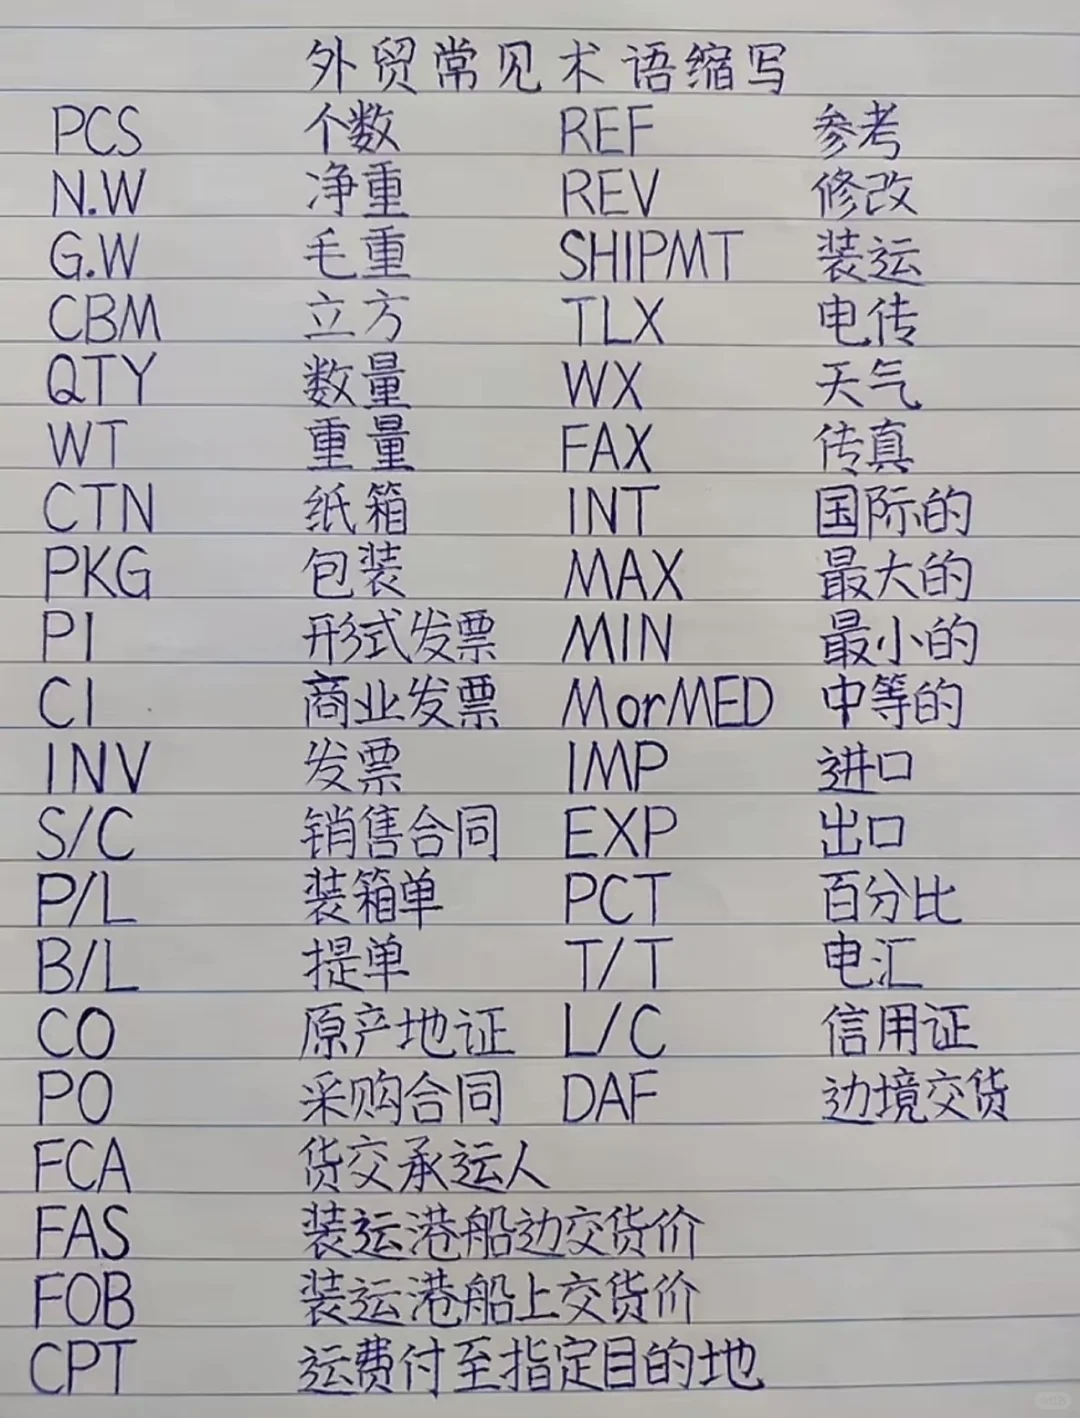 外贸常见术语缩写
PCS 个数 REF 参考
N.W 净重 REV 修改
G.W 毛重 SHIPMT 装运
CBM 立方 TLX 电传
QTY 数量 WX 天气
WT 重量 FAX 传真
CTN 纸箱 INT 国际的
PKG 包装 MAX 最大的
PI 形式发票 MIN 最小的
CI 商业发票 MorMED 中等的
INV 发票 IMP 进口
S/C 销售合同 EXP 出口
P/L 装箱单 PCT 百分比
B/L 提单 T/T 电汇
CO 原产地证 L/C 信用证
PO 采购合同 DAF 边境交货
FCA 货交承运人
FAS 装运港船边交货价
FOB 装运港船上交货价
CPT 运费付至指定目的地